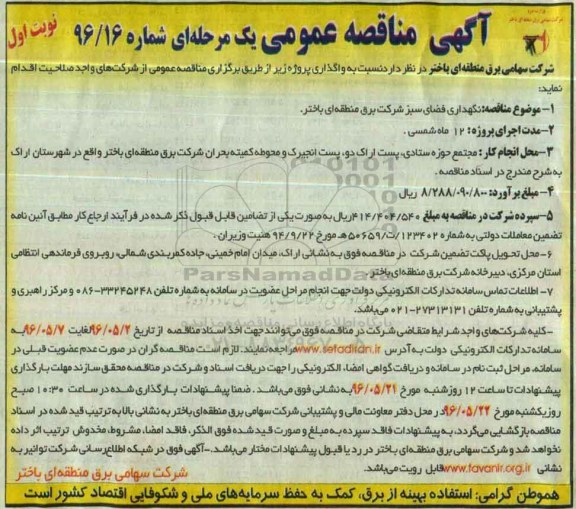 آگهی مناقصه عمومی یک مرحله‌ای شماره ۹۶/۱۶
نوبت اول
شرکت سهامی برق منطقه‌ای باختر در نظر دارد نسبت به واگذاری پروژه زیر از طریق برگزاری مناقصه عمومی از شرکت‌های واجد صلاحیت اقدام
نماید:
۱-موضوع مناقصه: نگهداری فضای سبز شرکت برق منطقه‌ای باختر.
۲-مدت اجرای پروژه: ۱۲ ماه شمسی.
۳-محل انجام کار: مجتمع حوزه ستادی، پست اراک دو، پست انجیرک و محوطه کمیته بحران شرکت برق منطقه‌ای باختر واقع در شهرستان اراک
به شرح مندرج در اسناد مناقصه.
۴-مبلغ برآورد: ۸/۲۸۸/۰۹۰/۸۰۰ ریال
۵-سپرده شرکت در مناقصه به مبلغ ۴۱۴/۴۰۴/۵۴۰ ریال به صورت یکی از تضامین قابل قبول ذکر شده در فرآیند ارجاع کار مطابق آئین نامه
تضمین معاملات دولتی به شماره ۱۲۳۴۰۲/ت۵۰۶۵۹هـ مورخ ۹۴/۹/۲۲ هئیت وزیران.
۶-محل تحویل پاکت تضمین شرکت در مناقصه فوق به نشانی اراک، میدان امام خمینی، جاده کمربندی شمالی، روبروی فرماندهی انتظامی
استان مرکزی، دبیرخانه شرکت برق منطقه‌ای باختر.
۷-اطلاعات تماس سامانه تدارکات الکترونیکی دولت جهت انجام مراحل عضویت در سامانه به شماره تلفن ۳۳۲۴۵۲۴۸-۰۸۶ و مرکز راهبری و
پشتیبانی به شماره تلفن ۲۷۳۱۳۱۳۱-۰۲۱ می‌باشد.
-کلیه شرکت‌های واجد شرایط متقاضی شرکت در مناقصه فوق می‌توانند جهت اخذ اسناد مناقصه از تاریخ ۹۶/۰۵/۲ لغایت ۹۶/۰۵/۷ به
سامانه تدارکات الکترونیکی دولت به آدرس www.setadiran.ir مراجعه نمایند. لازم است مناقصه گران در صورت عدم عضویت قبلی در
سامانه، مراحل ثبت نام در سامانه و دریافت گواهی امضاء الکترونیکی را جهت دریافت اسناد و شرکت در مناقصه محقق سازند مهلت بارگذاری
پیشنهادات تا ساعت ۱۲ روز شنبه مورخ ۹۶/۰۵/۲۱ به نشانی فوق می‌باشد. ضمنا پیشنهادات بارگذاری شده در ساعت ۱۰:۳۰ صبح
روز یکشنبه مورخ ۹۶/۰۵/۲۲ در محل دفتر معاونت مالی و پشتیبانی شرکت سهامی برق منطقه‌ای باختر به نشانی بالا به ترتیب قید شده در اسناد
مناقصه بازگشایی می‌گردد، به پیشنهادات فاقد سپرده به مبلغ و صورت قید شده فوق الذکر، فاقد امضا، مشروط، مخدوش ترتیب اثر داده
نخواهد شد و شرکت سهامی برق منطقه‌ای باختر در رد یا قبول پیشنهادات مختار می‌باشد.-آگهی فوق در شبکه اطلاع‌رسانی شرکت توانیر به
نشانی www.tavanir.org.ir قابل رویت می‌باشد.
شرکت سهامی برق منطقه‌ای باختر
هموطن گرامی: استفاده بهینه از برق، کمک به حفظ سرمایه‌های ملی و شکوفایی اقتصاد کشور است